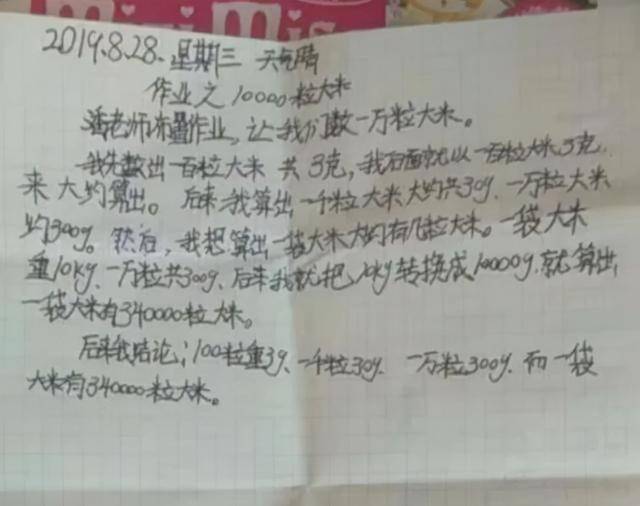 Mini Mis
2019.8.28. 星期三 天气晴
作业之10000粒大米
潘老师布置作业，让我们数一万粒大米。
我先数出一百粒大米 共3克，我后面就以一百粒大米3克，
来大约算出。后来我算出一千粒大米大约共30g，一万粒大米
约300g。然后，我想算出一袋大米大约有几粒大米。一袋大米
重10kg、一万粒共300g、后来我就把10kg转换成10000g，就算出，
一袋大米有340000粒大米。
后来我结论；100粒重3g、一千粒30g、一万粒300g．而一袋
大米有340000粒大米。